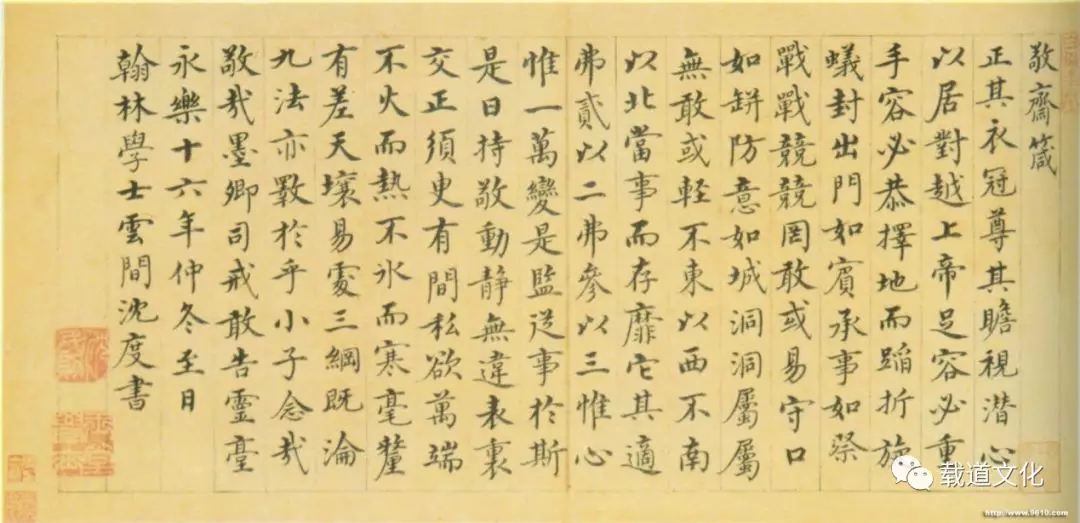 敬齋箴
正其衣冠尊其瞻視潛心
以居對越上帝足容必重
手容必恭擇地而蹈折旋
蟻封出門如賓承事如祭
戰戰競競罔敢或易守口
如缾防意如城洞洞屬屬
無敢或輕不東以西不南
以北當事而存靡它其適
弗貳以二弗參以三惟心
惟一萬變是監從事於斯
是日持敬動靜無違表裏
交正須臾有間私欲萬端
不火而熱不氷而寒毫釐
有差天壤易處三綱既淪
九法亦斁於乎小子念哉
敬哉墨卿司戒敢告靈臺
永樂十六年仲冬至日
翰林學士雲間沈度書
载道文化
http://www.9610.com